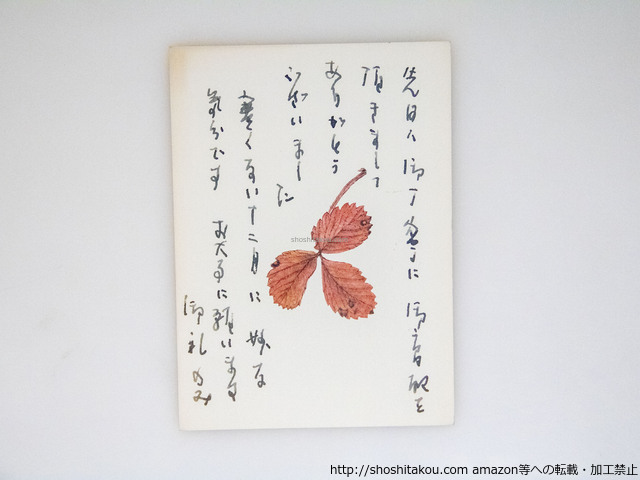 先日は御丁寧に御高配を
頂きまして
ありがとう
ございまし
た
寒くない十二月に妙な
気分です お大事に願います
御礼のみ
shoshitakou.com
http://shoshitakou.com amazon等への転載・加工禁止